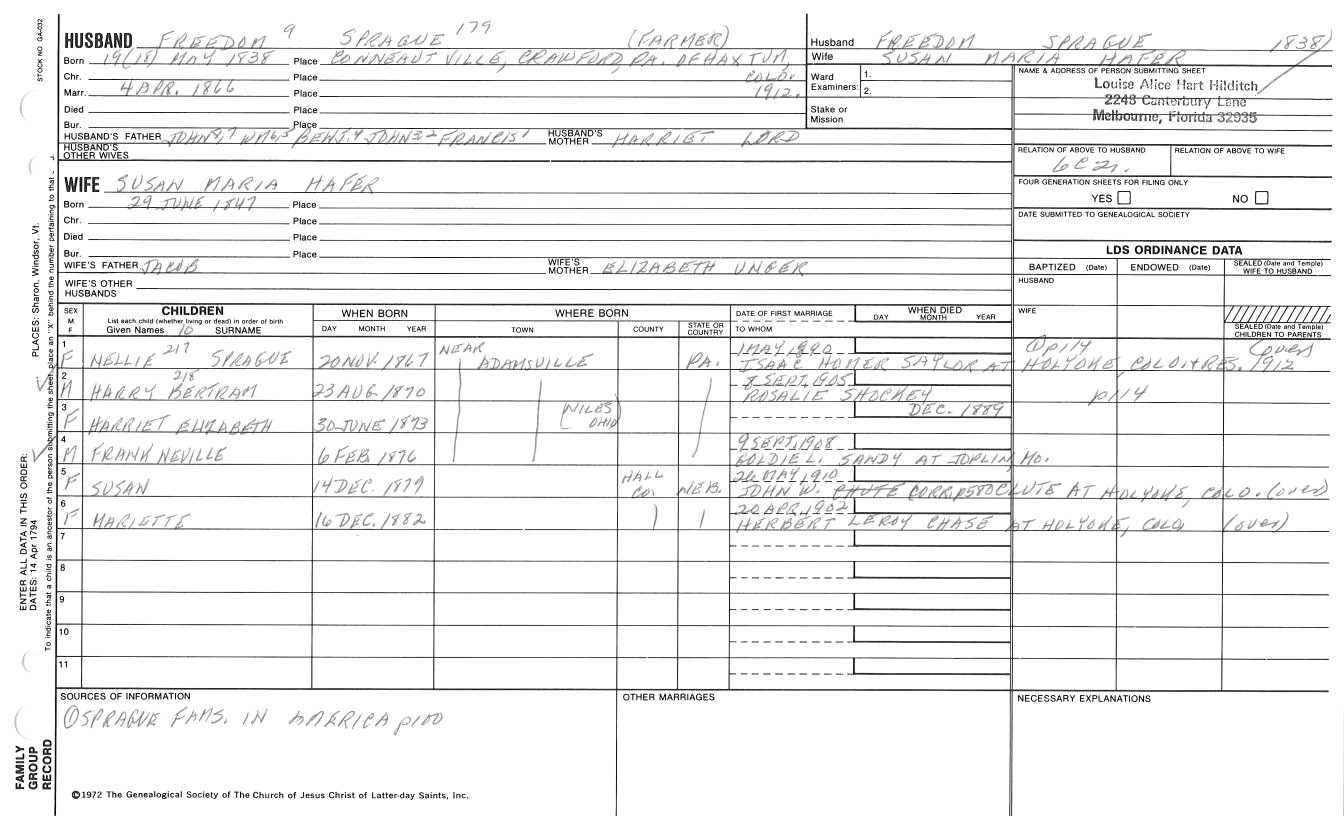 STOCK NO. GA-032
HUSBAND FREEDOM 9 SPRAGUE 179 (FARMER)
Born 19(18) MAY 1838 Place CONNEAUTVILLE, CRAWFORD, PA. OF HAXTUM, COLO. 1912.
Chr. Place
Marr. 4 APR. 1866 Place
Died Place
Bur. Place
HUSBAND'S FATHER JOHN 8,7 WM 6,5 BENJ. 4 JOHN 3-2 FRANCIS 1 HUSBAND'S MOTHER HARRIET LORD
HUSBAND'S OTHER WIVES
Husband FREEDOM SPRAGUE 1838)
Wife SUSAN MARIA HAFER
Ward Examiners: 1. 2.
Stake or Mission
NAME & ADDRESS OF PERSON SUBMITTING SHEET
Louise Alice Hart Hilditch
2243 Canterbury Lane
Melbourne, Florida 32935
RELATION OF ABOVE TO HUSBAND RELATION OF ABOVE TO WIFE
6C2r.
FOUR GENERATION SHEETS FOR FILING ONLY
YES NO
DATE SUBMITTED TO GENEALOGICAL SOCIETY
WIFE SUSAN MARIA HAFER
Born 29 JUNE 1847 Place
Chr. Place
Died Place
Bur. Place
WIFE'S FATHER JACOB WIFE'S MOTHER ELIZABETH UNGER
WIFE'S OTHER HUSBANDS
LDS ORDINANCE DATA
BAPTIZED (Date) ENDOWED (Date) SEALED (Date and Temple) WIFE TO HUSBAND
HUSBAND
WIFE
SEALED (Date and Temple) CHILDREN TO PARENTS
SEX M F CHILDREN WHEN BORN WHERE BORN DATE OF FIRST MARRIAGE WHEN DIED
List each child (whether living or dead) in order of birth
Given Names 10 SURNAME DAY MONTH YEAR TOWN COUNTY STATE OR COUNTRY TO WHOM DAY MONTH YEAR
1 F NELLIE 217 SPRAGUE 20 NOV. 1867 NEAR ADAMSVILLE PA. 1 MAY 1890 ① p114 (over)
ISAAC HOMER SAYLOR AT HOLYOKE, COLO. + RES. 1912
2 M HARRY 218 BERTRAM 23 AUG 1870 8 SEPT. 1905 p114
ROSALIE SHOCKEY
3 F HARRIET ELIZABETH 30 JUNE 1873 (NILES OHIO) DEC. 1889
4 M FRANK NEVILLE 6 FEB 1876 9 SEPT. 1908
GOLDIE L. SANDY AT JOPLIN, MO.
5 F SUSAN 14 DEC. 1879 HALL CO. NEB. 26 MAY, 1910
JOHN W. CHUTE CORR. p580 CLUTE AT HOLYOKE, COLO. (over)
6 F MARIETTE 16 DEC. 1882 20 APR, 1902
HERBERT LEROY CHASE AT HOLYOKE, COLO (over)
7
8
9
10
11
SOURCES OF INFORMATION OTHER MARRIAGES NECESSARY EXPLANATIONS
① SPRAGUE FAMS. IN AMERICA p100
©1972 The Genealogical Society of The Church of Jesus Christ of Latter-day Saints, Inc.
FAMILY GROUP RECORD
ENTER ALL DATA IN THIS ORDER:
DATES: 14 Apr 1794
PLACES: Sharon, Windsor, Vt.
To indicate that a child is an ancestor of the person submitting the sheet, place an "X" behind the number pertaining to that